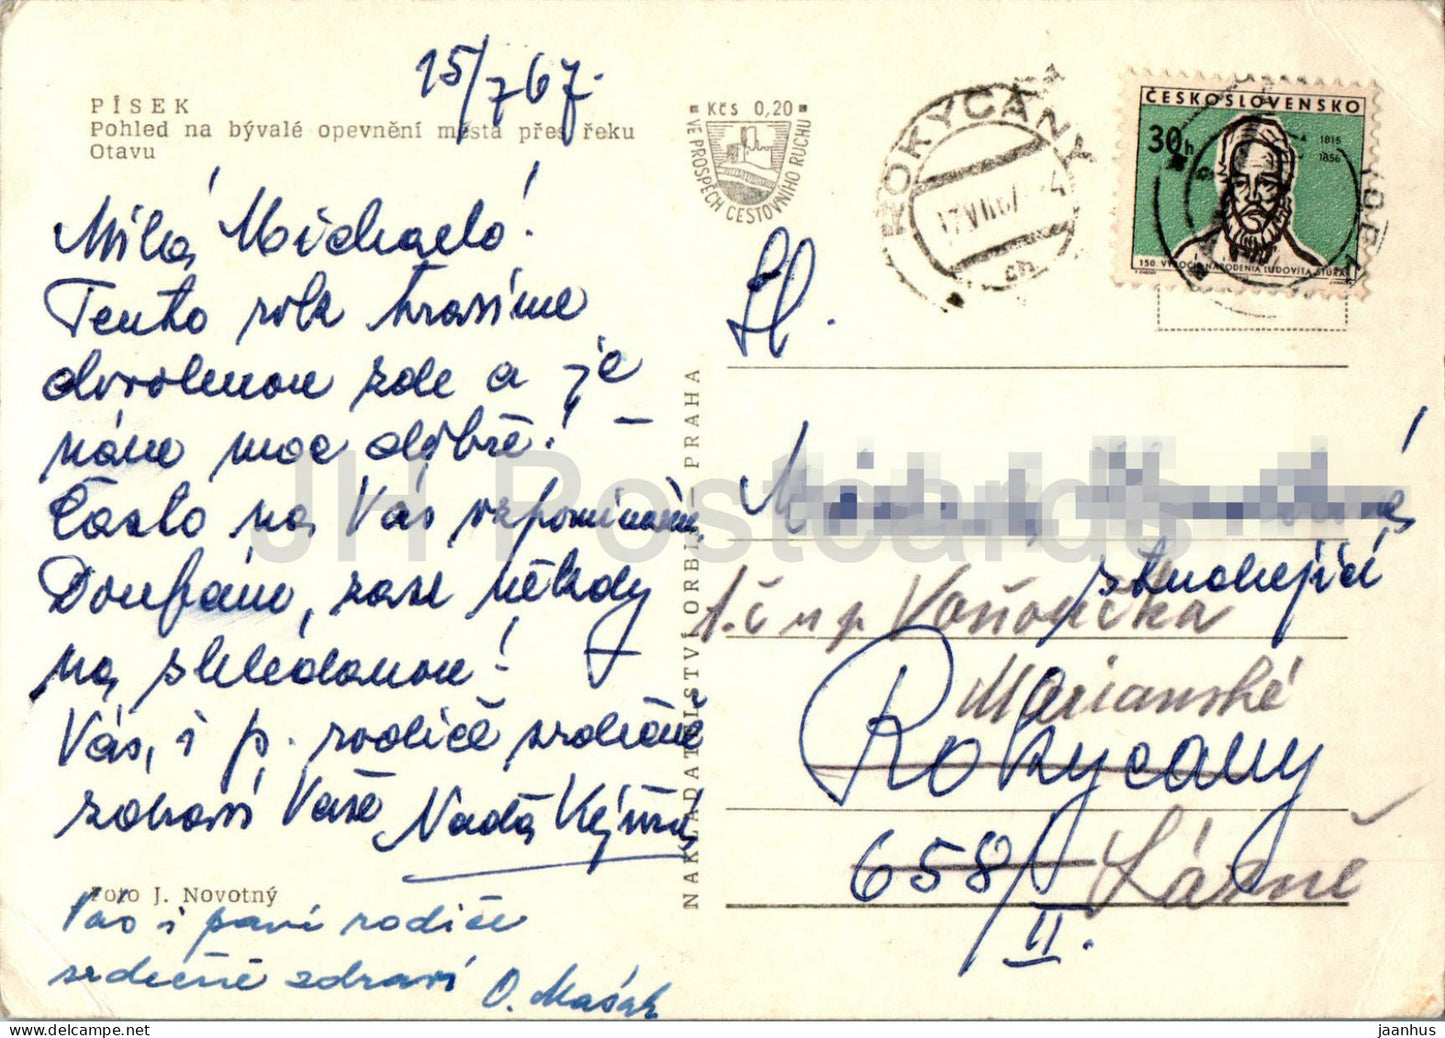 PÍSEK
Pohled na bývalé opevnění města přes řeku
Otavu
15/7 67.
Milá Michaelo!
Tento rok trávíme
dovolenou zde a je
náme moc dobře!
Často na Vás vzpomínám,
Doufám, zase někdy
na shledanou!
Vás, i p. rodiče srdečně
zdraví Vaše Naďa
Foto J. Novotný
Vás i paní rodiče
srdečně zdraví O. Mašek
NAKLADATELSTVÍ ORBIS — PRAHA
Kčs 0,20
VE PROSPĚCH CESTOVNÍHO RUCHU
ROKYCANY
ČESKOSLOVENSKO
30h
1815
1856
150. VÝROČIE NARODENIA ĽUDOVÍTA ŠTÚRA
Sl.
studující
1. č n p Vošovička
Marianské
Rokycany
658/
II.
Lázně
JH Postcards
jaanhe.com